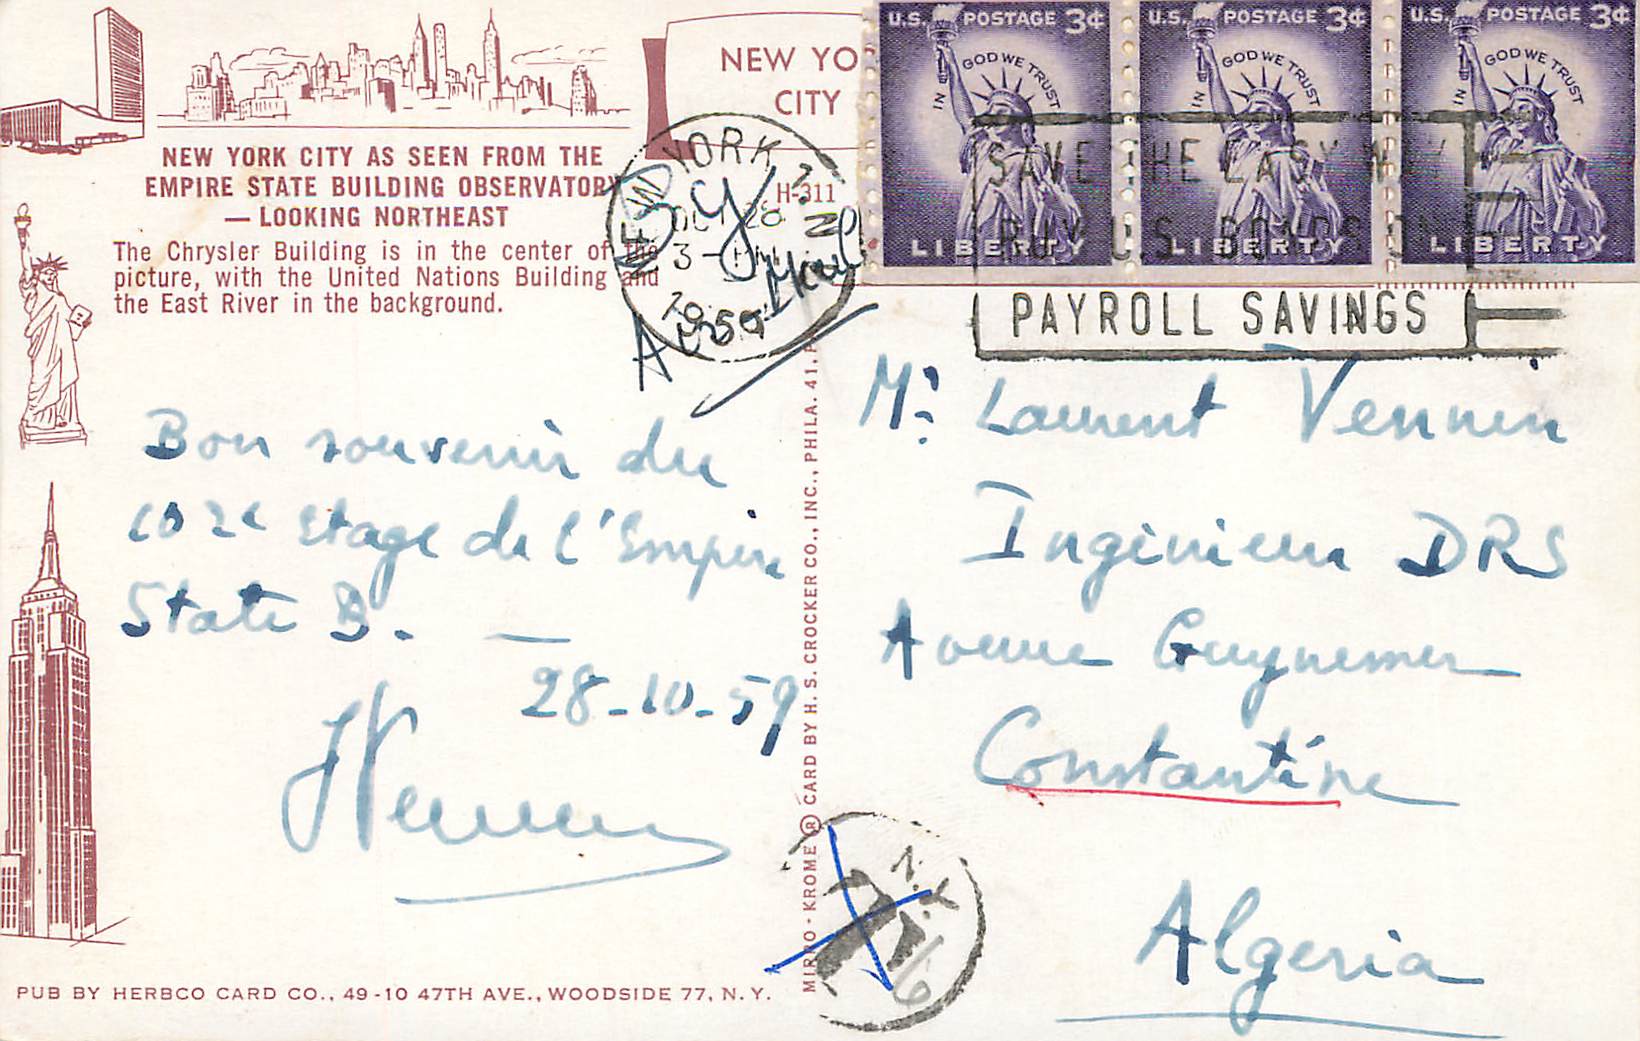 NEW YORK CITY AS SEEN FROM THE
EMPIRE STATE BUILDING OBSERVATORY
— LOOKING NORTHEAST
The Chrysler Building is in the center of the
picture, with the United Nations Building and
the East River in the background.
NEW YO
CITY
H-311
NEW YORK
3 -
1959
N.Y.
By Air Mail
U.S. POSTAGE 3¢
IN GOD WE TRUST
LIBERTY
U.S. POSTAGE 3¢
IN GOD WE TRUST
LIBERTY
U.S. POSTAGE 3¢
IN GOD WE TRUST
LIBERTY
SAVE THE EASY WAY
BUY U.S. BONDS ON
PAYROLL SAVINGS
Bon souvenir du
102e Etage de l'Empire
State B. —
28-10-59
Mr Laurent Vennin
Ingénieur DRS
Avenue Guynemer
Constantine
Algeria
N.Y.
MIRRO-KROME ® CARD BY H. S. CROCKER CO., INC., PHILA. 41, P
PUB BY HERBCO CARD CO., 49-10 47TH AVE., WOODSIDE 77, N. Y.